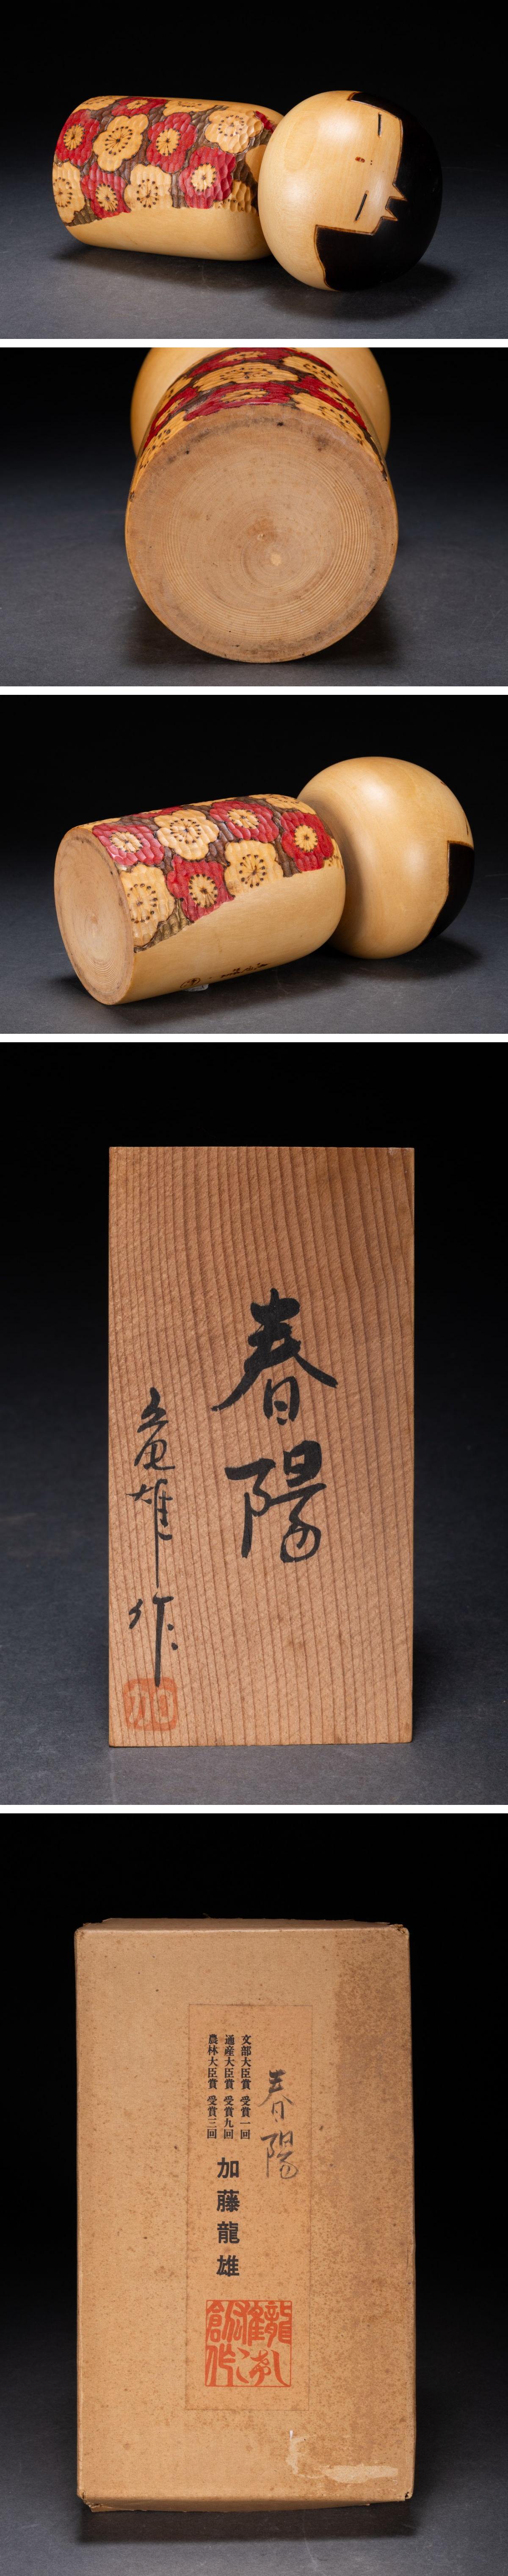 春陽
竜雄作
加
春陽
文部大臣賞 受賞一回
通産大臣賞 受賞九回
農林大臣賞 受賞三回
加藤龍雄
龍雄こけし創作